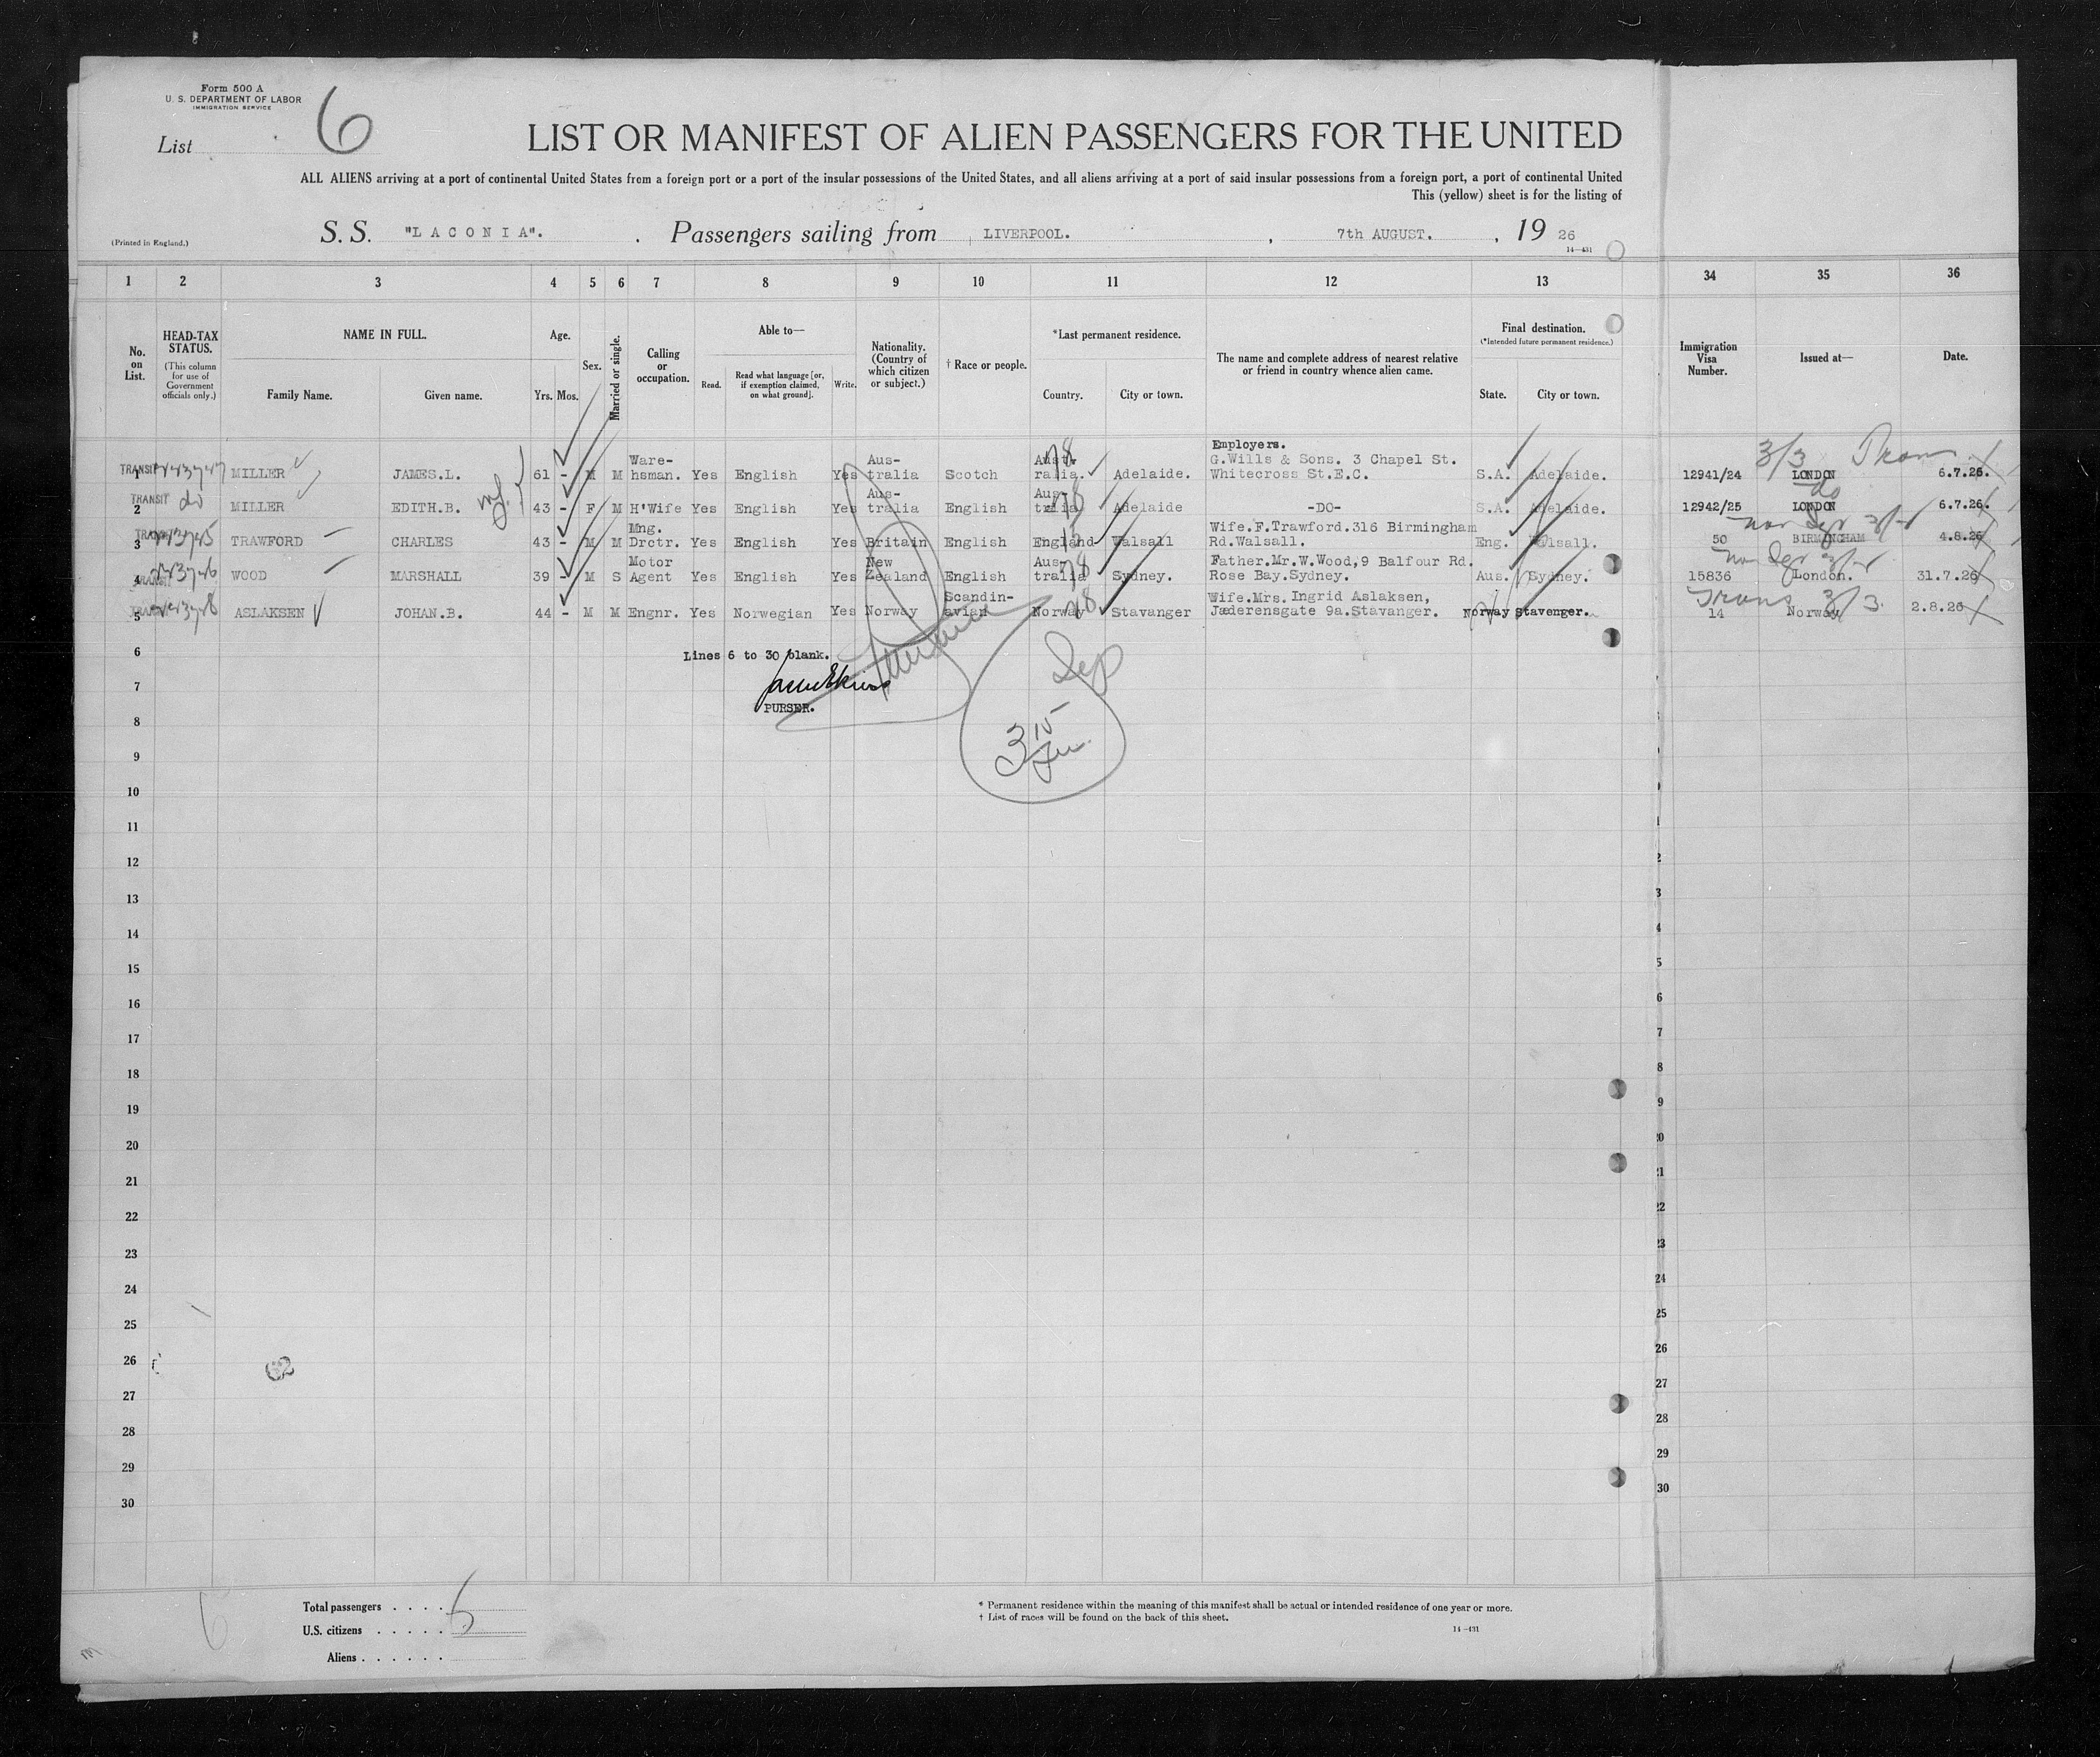 Form 500 A
U. S. DEPARTMENT OF LABOR
IMMIGRATION SERVICE
List 6
LIST OR MANIFEST OF ALIEN PASSENGERS FOR THE UNITED
ALL ALIENS arriving at a port of continental United States from a foreign port or a port of the insular possessions of the United States, and all aliens arriving at a port of said insular possessions from a foreign port, a port of continental United
This (yellow) sheet is for the listing of
(Printed in England.)
S. S. "LACONIA". Passengers sailing from LIVERPOOL. , 7th AUGUST. , 19 26
14-431
1 2 3 4 5 6 7 8 9 10 11 12 13 34 35 36
No. on List.
HEAD-TAX STATUS.
(This column for use of Government officials only.)
NAME IN FULL.
Family Name. Given name.
Age.
Yrs. Mos.
Sex.
Married or single.
Calling or occupation.
Able to—
Read. Read what language [or, if exemption claimed, on what ground]. Write.
Nationality. (Country of which citizen or subject.)
† Race or people.
*Last permanent residence.
Country. City or town.
The name and complete address of nearest relative or friend in country whence alien came.
Final destination.
(*Intended future permanent residence.)
State. City or town.
Immigration Visa Number.
Issued at—
Date.
1 TRANSIT MILLER JAMES.L. 61 - M M Ware-hsman. Yes English Yes Aus-tralia Scotch Aust-ralia. Adelaide. Employers. G.Wills & Sons. 3 Chapel St. Whitecross St.E.C. S.A. Adelaide. 12941/24 LONDON 6.7.26. 3/3
2 TRANSIT do MILLER EDITH.B. 43 - F M H'Wife Yes English Yes Aus-tralia English Aus-tralia Adelaide -DO- S.A. Adelaide. 12942/25 LONDON do 6.7.26.
3 TRANSIT TRAWFORD CHARLES 43 - M M Mng. Drctr. Yes English Yes Britain English England Walsall Wife.F.Trawford.316 Birmingham Rd.Walsall. Eng. Walsall. 50 BIRMINGHAM 4.8.26
4 TRANSIT WOOD MARSHALL 39 - M S Motor Agent Yes English Yes New Zealand English Aus-tralia Sydney. Father.Mr.W.Wood,9 Balfour Rd. Rose Bay.Sydney. Aus. Sydney. 15836 London. 31.7.26
5 TRANSIT ASLAKSEN JOHAN.B. 44 - M M Engnr. Yes Norwegian Yes Norway Scandin-avian Norway Stavanger Wife.Mrs. Ingrid Aslaksen, Jæderensgate 9a.Stavanger. Norway Stavenger. 14 Norway 2.8.26 Trans 3/3
6 Lines 6 to 30 blank.
7
PURSER.
8
9
10
11
12
13
14
15
16
17
18
19
20
21
22
23
24
25
26
27
28
29
30
Total passengers . . . . 5
U.S. citizens . . . . .
Aliens . . . . . .
* Permanent residence within the meaning of this manifest shall be actual or intended residence of one year or more.
† List of races will be found on the back of this sheet.
14-431